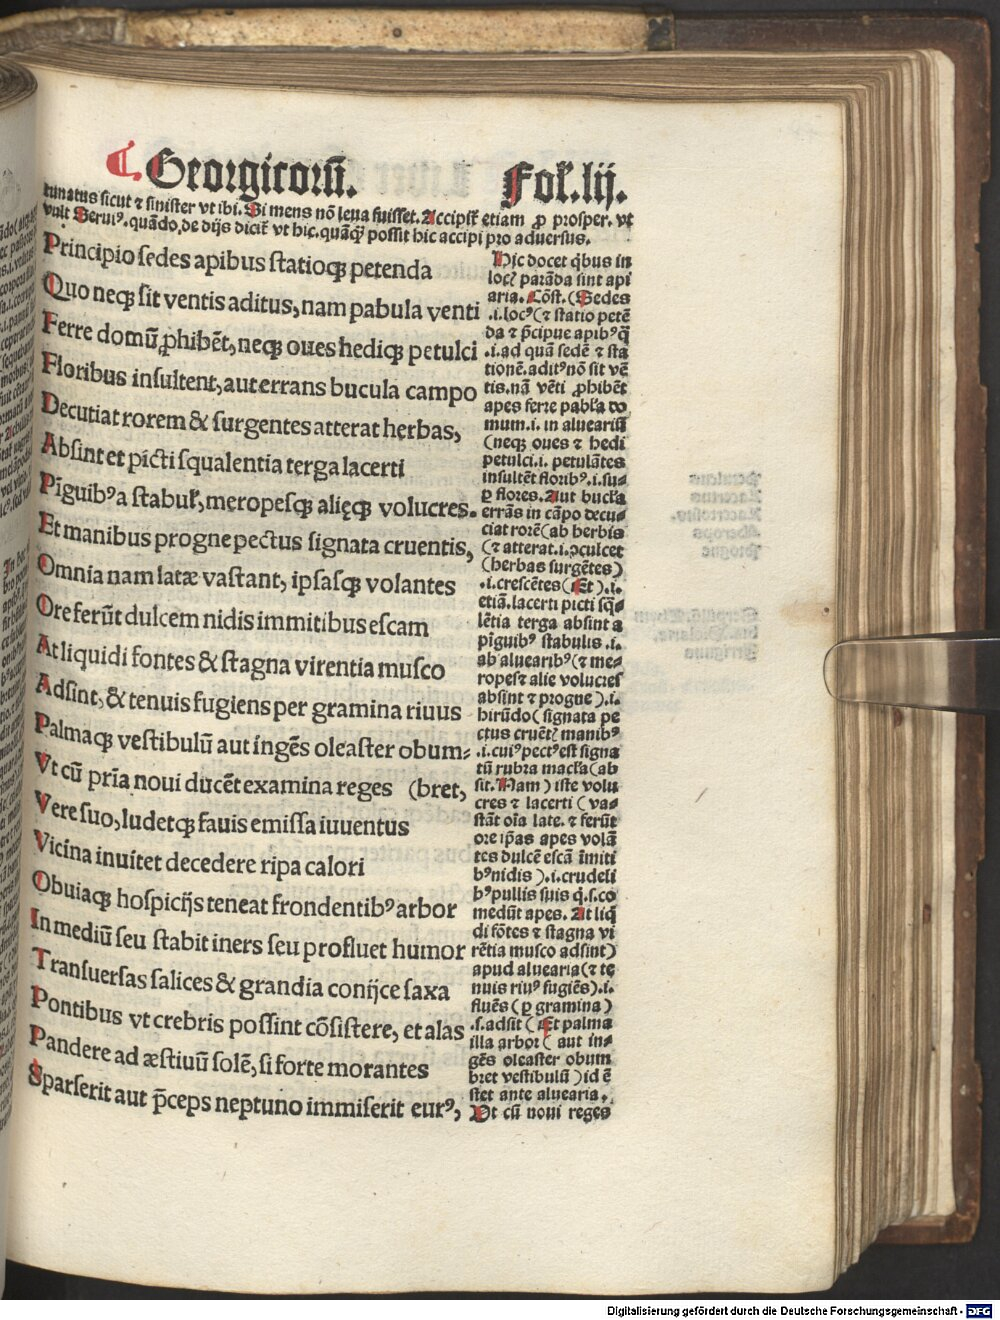 ⸿. Georgicorũ. Fol. lij.
tunatus sicut ⁊ sinister vt ibi. Si mens nõ leua fuisset. Accipit̃ etiam ꝓ prosper. vt
vult Seruiꝰ. quãdo, de dijs dicit̃ vt hic. quãqꝫ possit hic accipi pro aduersus.
Principio sedes apibus statioqꝫ petenda
Quo neqꝫ sit ventis aditus, nam pabula venti
Ferre domũ ꝓhibẽt, neqꝫ oues hediqꝫ petulci
Floribus insultent, aut errans bucula campo
Decutiat rorem & surgentes atterat herbas,
Absint et picti squalentia terga lacerti
Pĩguibꝰ a stabuł, meropesqꝫ alięqꝫ volucres.
Et manibus progne pectus signata cruentis,
Omnia nam latæ vastant, ipsasqꝫ volantes
Ore ferũt dulcem nidis immitibus escam
At liquidi fontes & stagna virentia musco
Adsint, & tenuis fugiens per gramina riuus
Palmaqꝫ vestibulũ aut ingẽs oleaster obum-
Vt cũ prĩa noui ducẽt examina reges (bret,
Vere suo, ludetqꝫ fauis emissa iuuentus
Vicina inuitet decedere ripa calori
Obuiaqꝫ hospicijs teneat frondentibꝰ arbor
In mediũ seu stabit iners seu profluet humor
Transuersas salices & grandia conijce saxa
Pontibus vt crebris possint cõsistere, et alas
Pandere ad æstiuũ solẽ, si forte morantes
Sparserit aut p̃ceps neptuno immiserit eurꝰ,
Hic docet q̃bus in
locꝭ parãda sint api
aria. Cõst. (Sedes
.i. locꝰ (⁊ statio petẽ
da ⁊ p̃cipue apibꝰ q̃
.i. ad quã sedẽ ⁊ sta
tionẽ. aditꝰ nõ sit vẽ
tis. nã vẽti ꝓhibẽt
apes ferre pabła do
mum .i. in aluearifi
(neqꝫ oues ⁊ hedi
petulci .i. petulãtes
insultẽt floribꝰ .i. su-
ꝑ flores. Aut bucła
errãs in cãpo decu-
ciat rorẽ (ab herbis
(⁊ atterat .i. ↄculcet
(herbas surgẽtes)
.i. crescẽtes (Et) .i.
etiã. lacerti picti sq̃-
lẽtia terga absint a
pĩguibꝰ stabulis .i.
ab aluearibꝰ (⁊ me-
ropes ⁊ alie volucres
absint ⁊ progne) .i.
hirũdo (signata pe
ctus cruẽtꝭ manibꝰ
.i. cuiꝰ pectꝰ est signa
tũ rubra macła (ab
sit. Nam) iste volu
cres ⁊ lacerti (va-
stãt oĩa late. ⁊ ferũt
ore ip̃as apes volã
tes dulcẽ escã ĩmiti
bꝰ nidis) .i. crudeli
bꝰ pullis suis q̃. s. co
medũt apes. At liq̃
di fõtes ⁊ stagna vi
rẽtia musco adsint)
apud aluearia (⁊ te
nuis riuꝰ fugiẽs) .i.
fluẽs (ꝑ gramina)
.s. adsit (Et palma
illa arbor (aut in-
gẽs oleaster obum
bret vestibulũ) id ẽ
stet ante aluearia.
Vt cũ noui reges